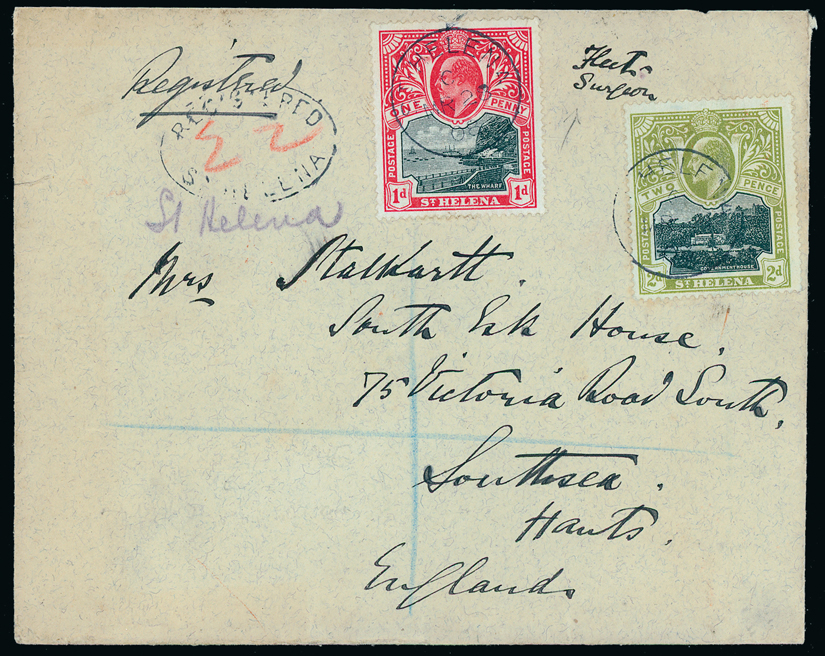 Registred
REGISTERED
ST HELENA
22
St Helena
ST HELENA
ONE PENNY
POSTAGE POSTAGE
THE WHARF
1d 1d
ST HELENA
Fleet
Surgeon
HELENA
TWO PENCE
POSTAGE POSTAGE
GOVERNMENT HOUSE
2d 2d
ST HELENA
Mrs Stalkartt.
South Esk House,
75 Victoria Road South,
Southsea.
Hants.
England